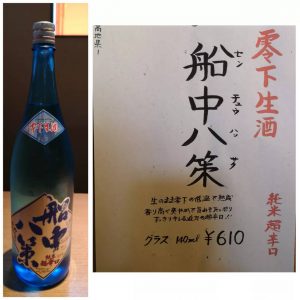 零下生酒
船中八策
高知県!
零下生酒
船中八策
セン
チュウ
ハッ
サク
純米超辛口
生のまま零下の低温で熟成
香り高く爽やかで旨みをたっぷり
グラス 140ml ¥610